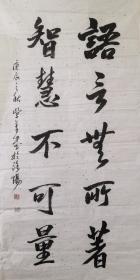 語言無所著
智慧不可量
庚辰之秋